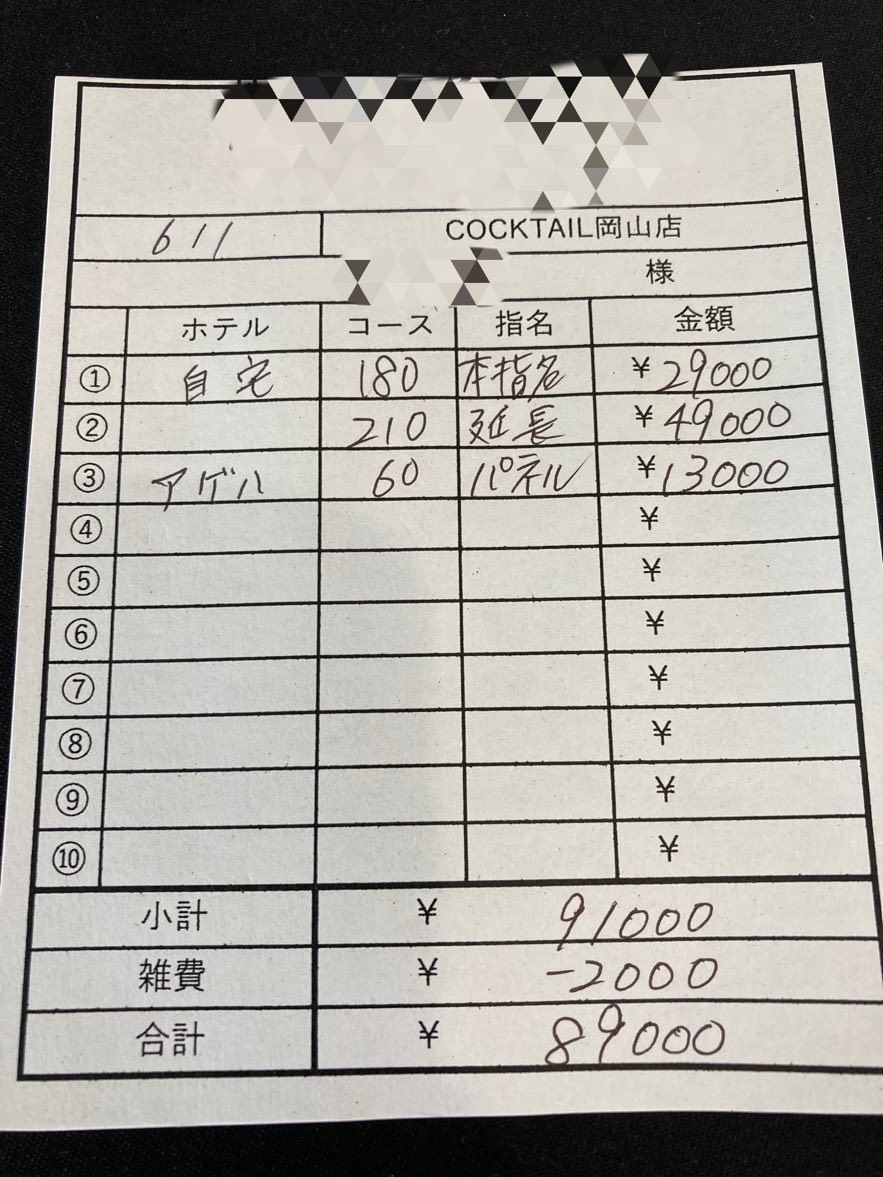 611 COCKTAIL岡山店
様
ホテル コース 指名 金額
① 自宅 180 本指名 ¥29000
② 210 延長 ¥49000
③ アゲハ 60 パネル ¥13000
④ ¥
⑤ ¥
⑥ ¥
⑦ ¥
⑧ ¥
⑨ ¥
⑩ ¥
小計 ¥ 91000
雑費 ¥ -2000
合計 ¥ 89000